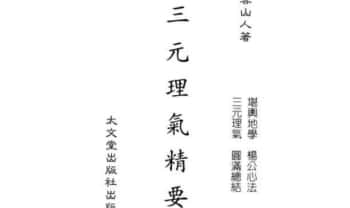 山人著
堪輿地學 楊公心法
三元理氣 圓滿總結
三元理氣精要
太文堂出版社出版